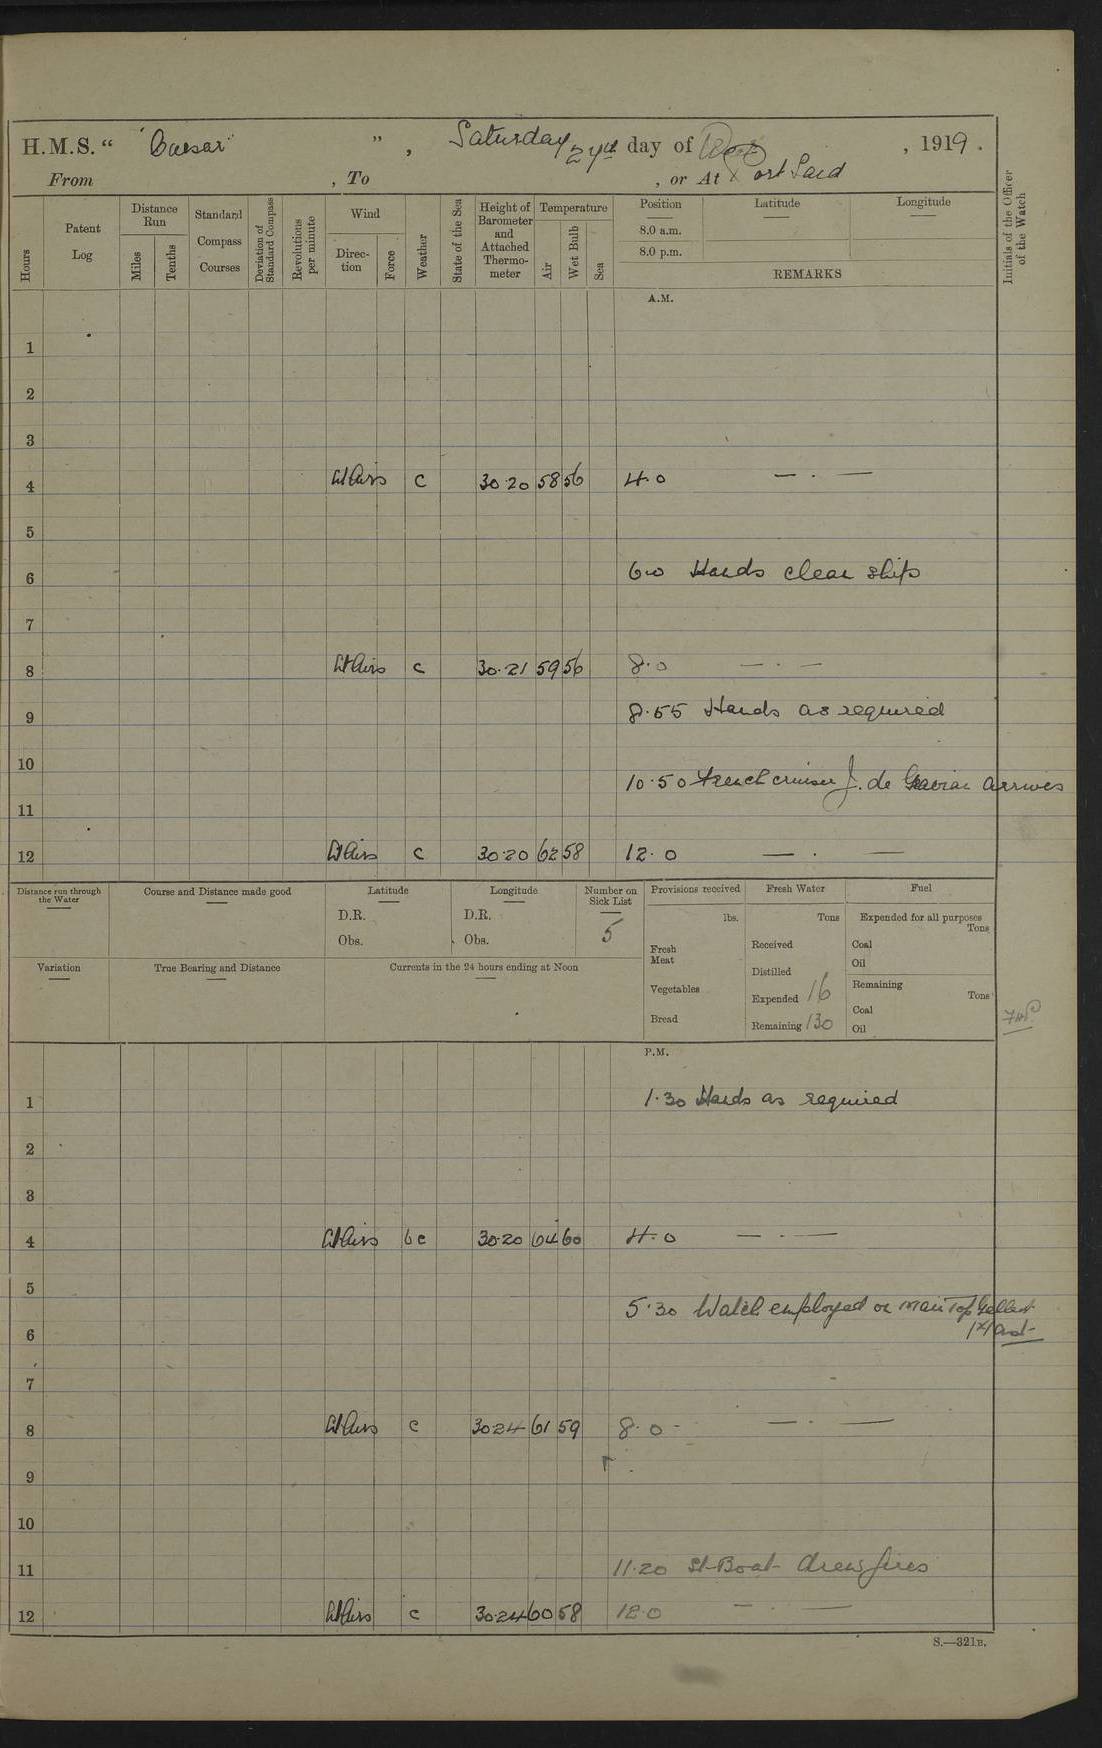 H.M.S. " "Caesar" " , Saturday day of , 1919 .
From , To , or At Port Said
Hours
Patent Log
Distance Run
Miles
Tenths
Standard Compass Courses
Deviation of Standard Compass
Revolutions per minute
Wind
Direc-tion
Force
Weather
State of the Sea
Height of Barometer and Attached Thermo-meter
Temperature
Air
Wet Bulb
Sea
Position Latitude Longitude
8.0 a.m.
8.0 p.m.
REMARKS
Initials of the Officer of the Watch
A.M.
1
2
3
4 Lt Airs c 30.20 58 56 4.0 — . —
5
6 6.0 Hands clean ship
7
8 Lt Airs c 30.21 59 56 8.0 — . —
9 8.55 Hands as required
10
10.50 French cruiser J. de arrives
11
12 Lt Airs c 30.20 62 58 12.0 — . —
Distance run through the Water
Course and Distance made good
Latitude
D.R.
Obs.
Longitude
D.R.
Obs.
Number on Sick List
5
Provisions received
lbs.
Fresh Meat
Vegetables
Bread
Fresh Water
Tons
Received
Distilled
Expended 16
Remaining 130
Fuel
Expended for all purposes
Tons
Coal
Oil
Remaining
Tons
Coal
Oil
Variation
True Bearing and Distance
Currents in the 24 hours ending at Noon
P.M.
1 1.30 Hands as required
2
3
4 Lt Airs bc 30.20 64 60 4.0 — . —
5
5.30 Watch employed on Main Top Gallant
6 Mast
7
8 Lt Airs c 30.24 61 59 8.0 - — . —
9
10
11 11.20 St-Boat drew fires
12 Lt Airs c 30.24 60 58 12.0 — . —
S.—321B.